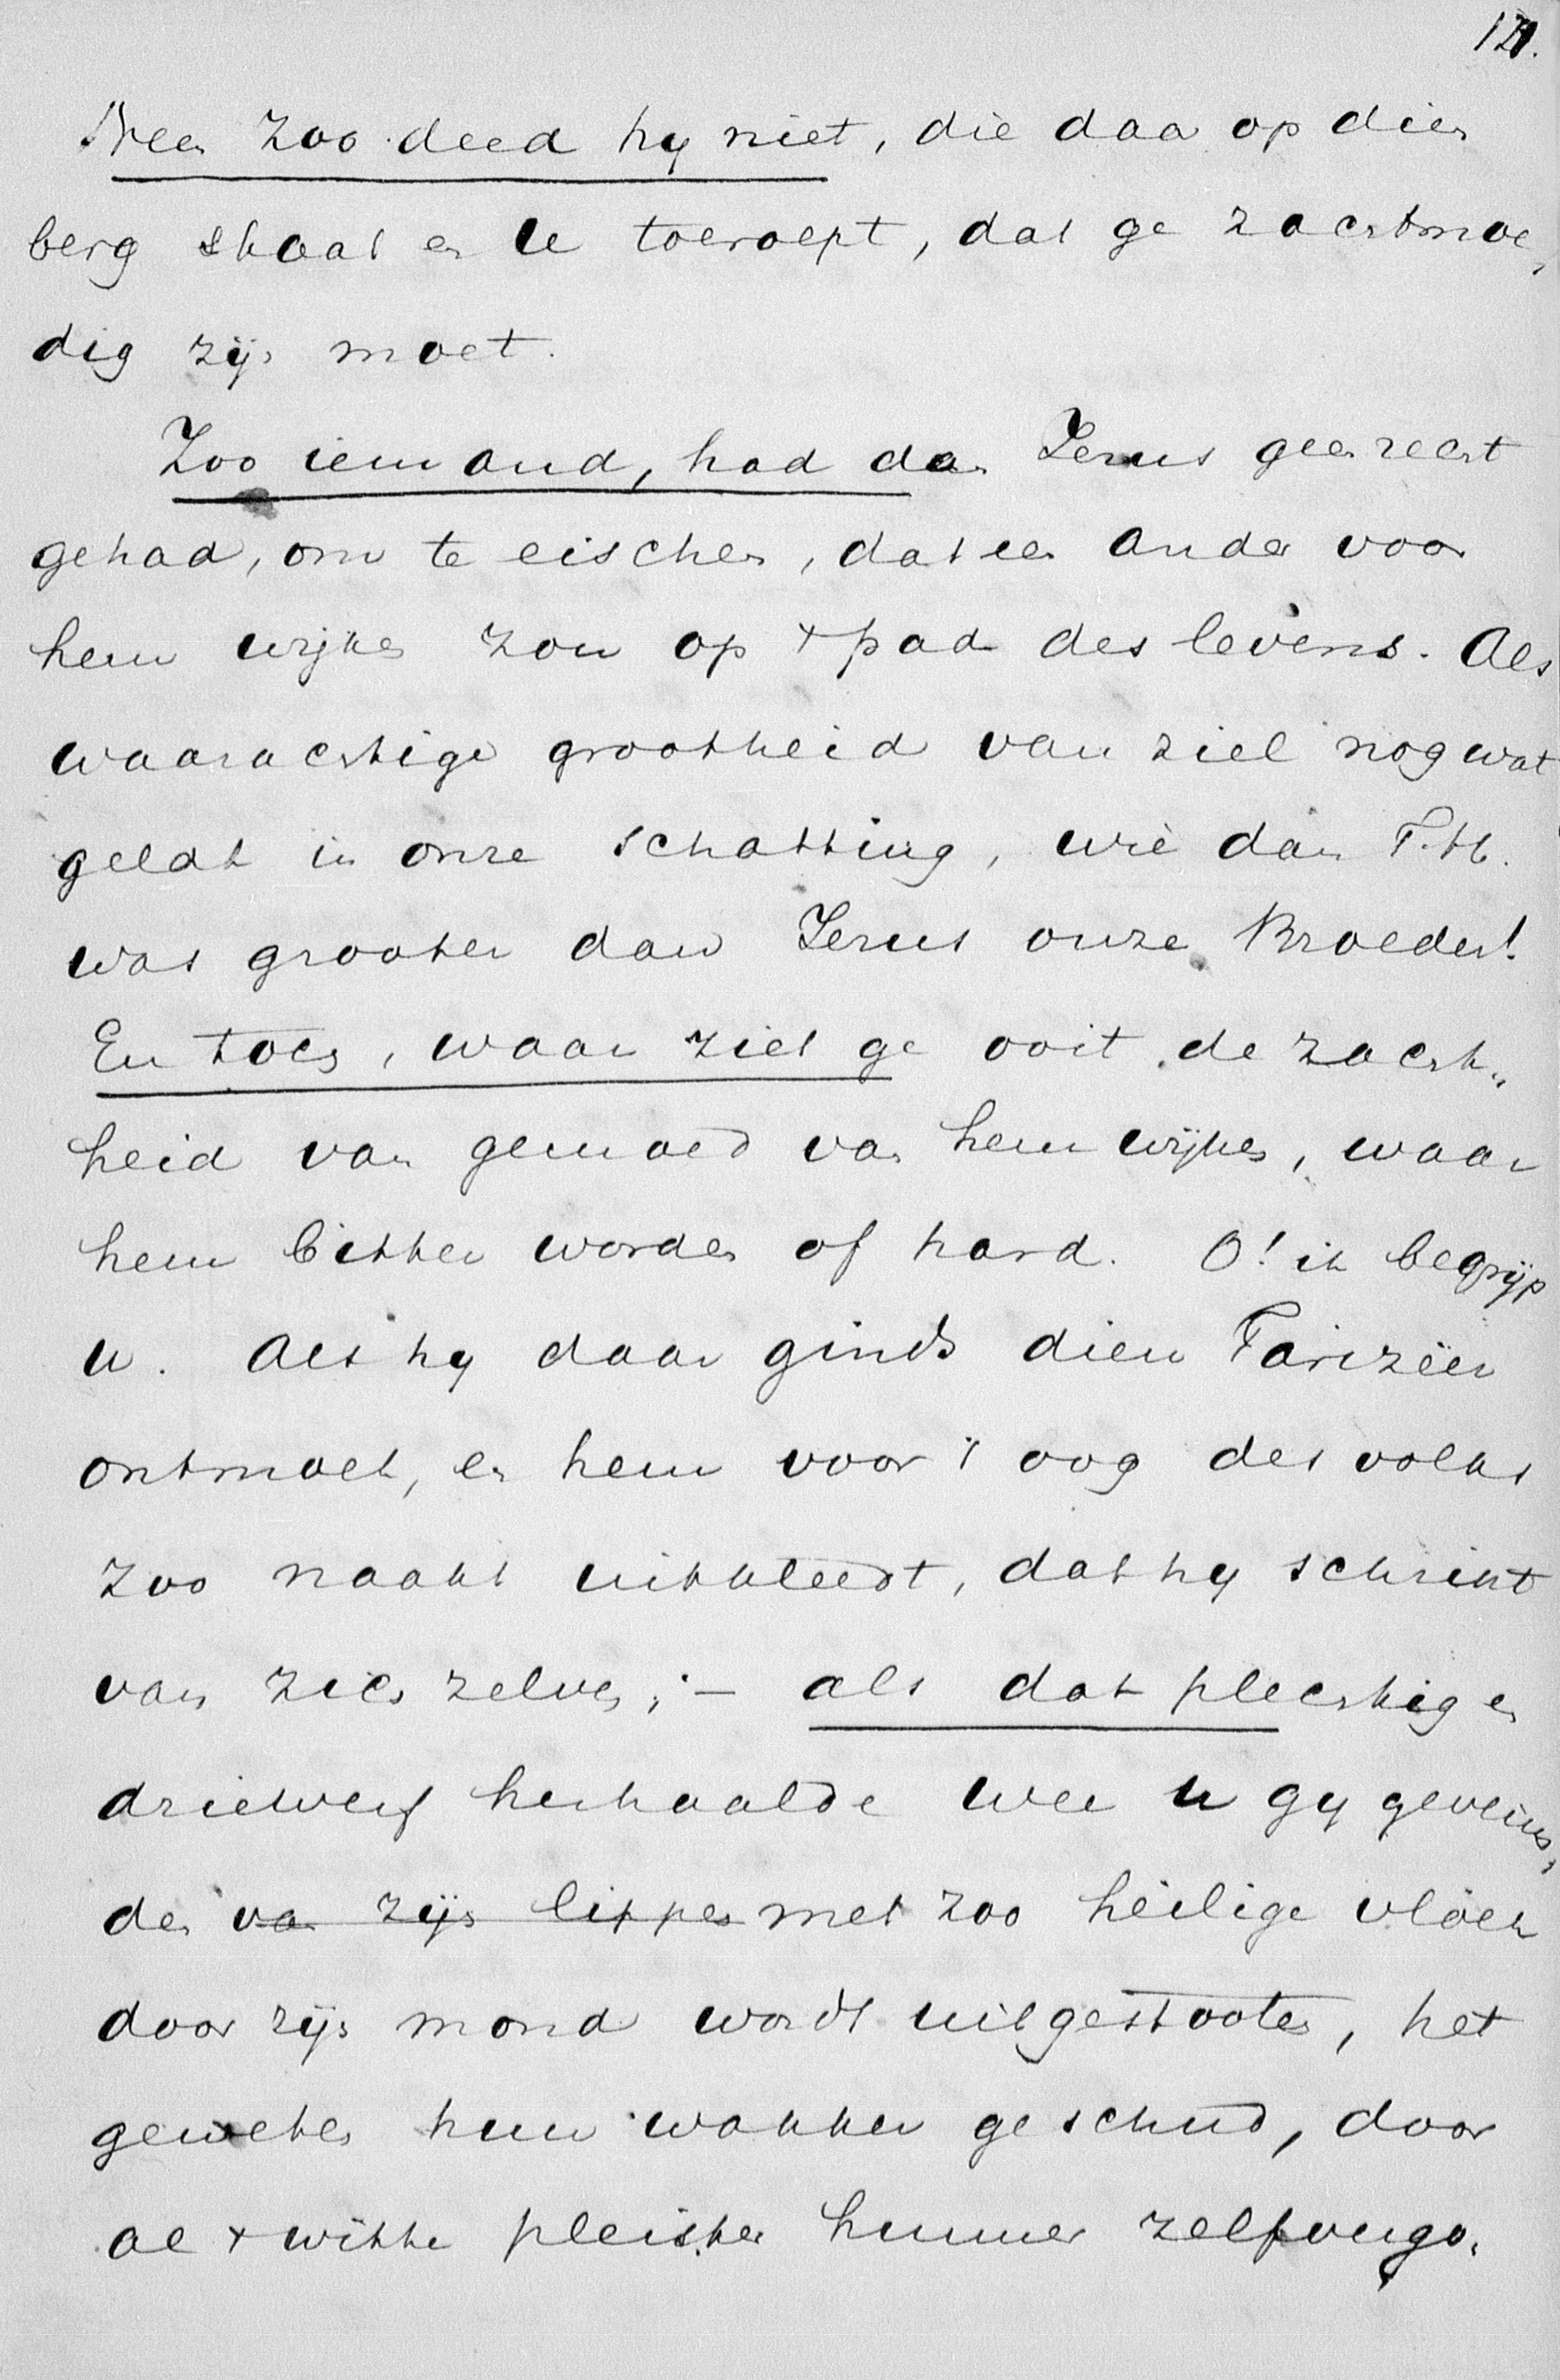 121.
Neen zoo deed hy niet, die daar op dien
berg staat en U toeroept, dat ge zachtmoe„
dig zijn moet.
Zoo iemand, had dan Jezus geen recht
gehad, om te eischen, dat een ander voor
hem wijken zou op 't pad des levens. Als
waarachtige grootheid van ziel nog wat
geldt in onze schatting, wie dan T. H.
was grooter dan Jezus onze Broeder!
En toch, waar ziet ge ooit de zacht„
heid van gemoed van hem wijken, waar
hem bitter worden of hard. O! ik begrijp
u. Als hy daar ginds dien Farizëer
ontmoet, en hem voor 't oog des volks
zoo naakt uitkleedt, dat hy schrikt
van zich zelven; – als dat plechtig en
driewerf herhaalde wee u gy geveins„
den van zijn lippen met zoo heilige vloek
door zijn mond wordt uitgestooten, het
geweten hun wakker geschud, door
al 't witte pleister hunner zelfvergo„